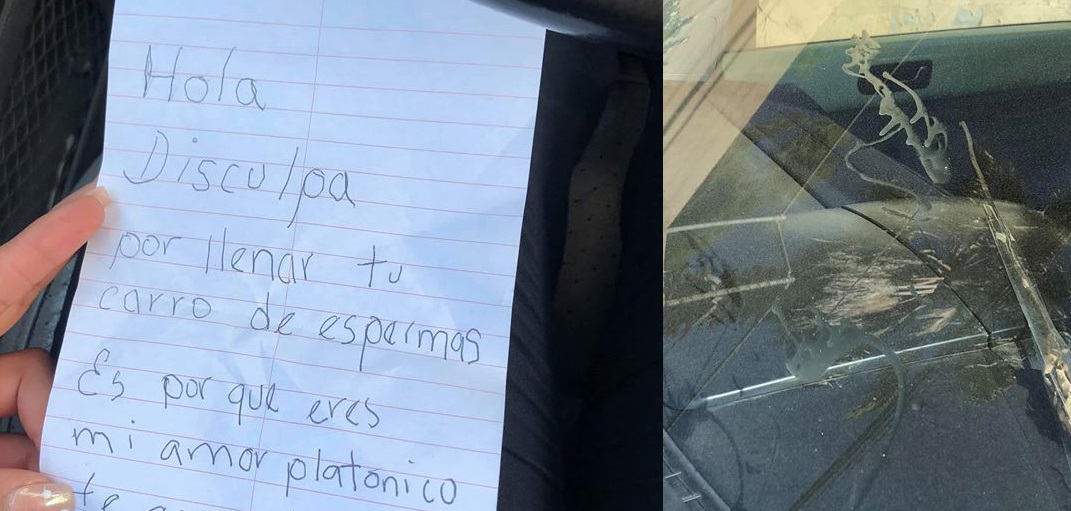 Hola
Disculpa
por llenar tu
carro de espermas
Es por que eres
mi amor platonico
te